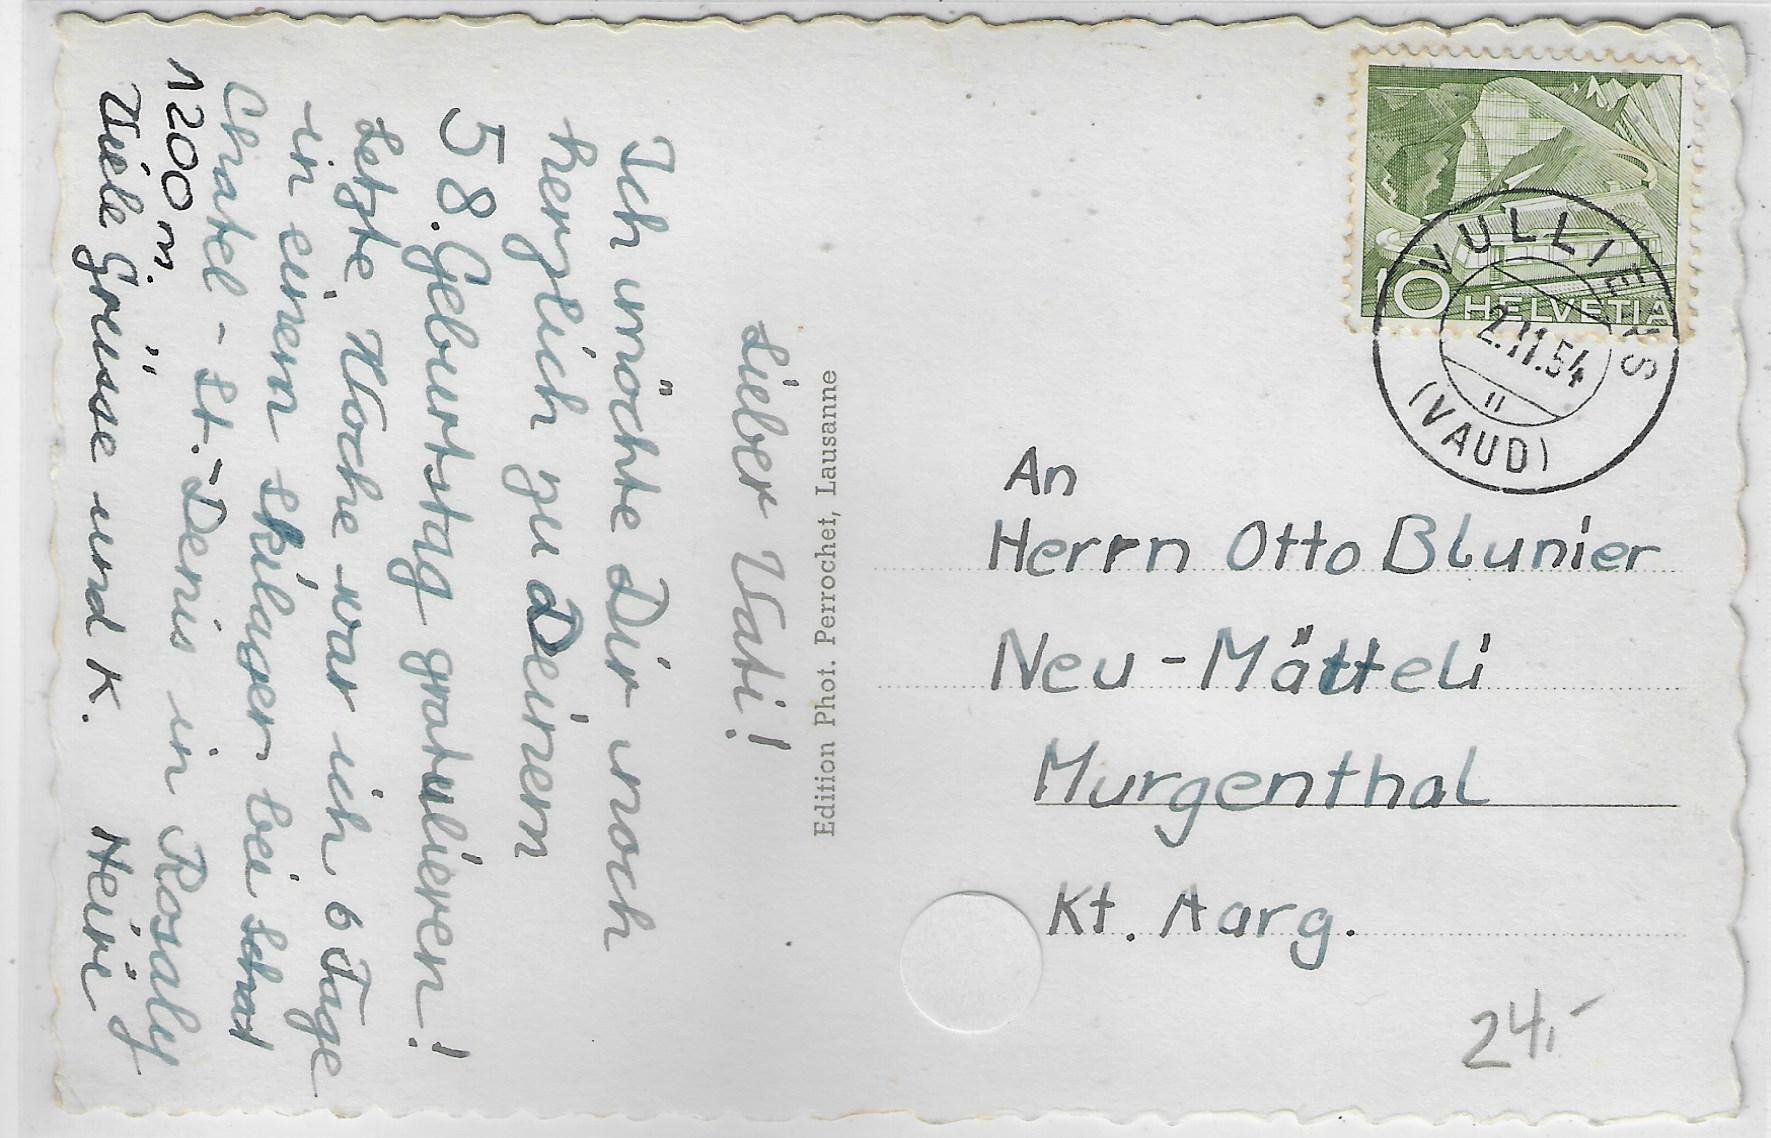 Lieber Vati!
Ich möchte Dir noch
herzlich zu Deinem
58. Geburtstag gratulieren!
Letzte Woche war ich 6 Tage
in einem Skilager bei
Châtel-St.-Denis in Rosaly
1200 m.
Viele Grüsse und K. Heiri
Edition Phot. Perrochet, Lausanne
10 HELVETIA
VULLIENS
2.11.54
(VAUD)
An
Herrn Otto Blunier
Neu-Mätteli
Murgenthal
Kt. Aarg.
24,-